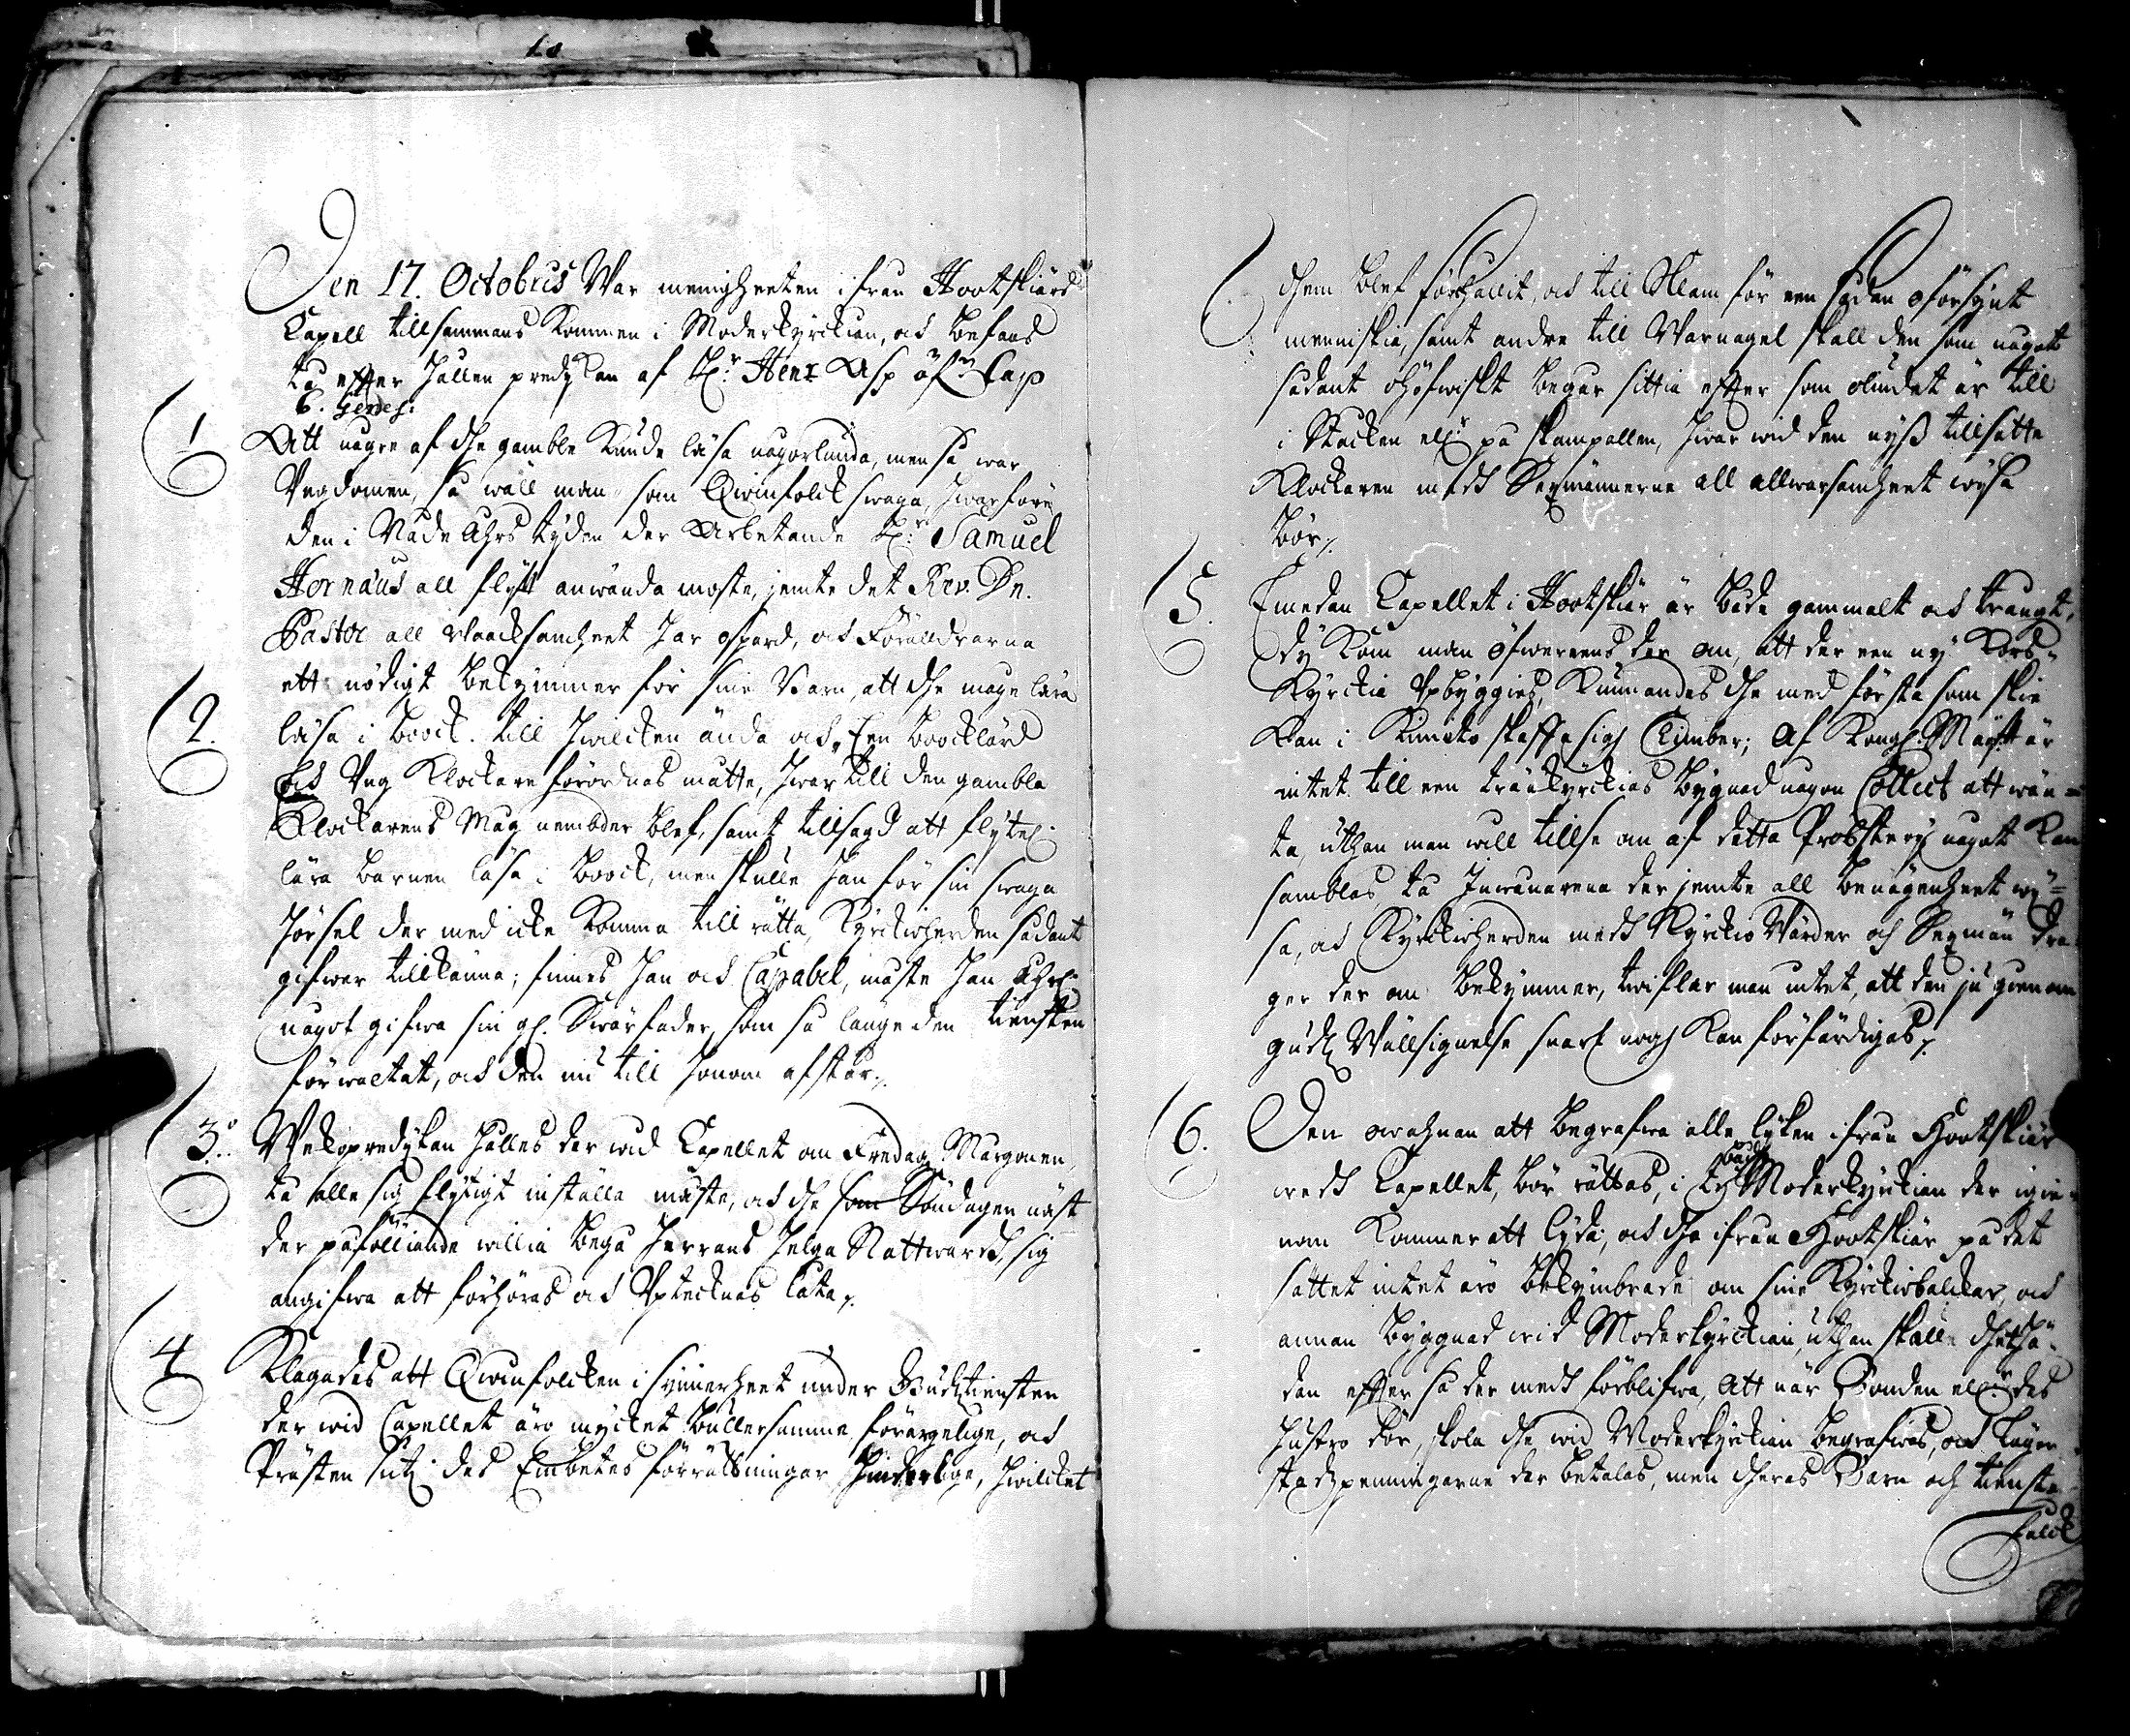 Den 17. Octobris War menigheeten ifrån Hootskiärs
Capell tillsammans kommen i Moderkyrkian, och befans
tå effter hållen predykan af H:r Henr Asp öf:r Cap
6. Genes:
1 Att någre af dhe gamble kunde läsa någorlunda, men så war
Ungdomen, så wäll man- som Qwinfolck swaga, hwarföre
den i Nåde Åhrs tyden der Arbetande H:r Samuel
Hornæus all flijt anwända måste, jemte det Rev. Dn.
Pastor all waacksamheet har ospard, och Föräldrarna
ett nödigt bekymmer för sine Barn, att dhe måge lära
2. läsa i boock. till hwilcken ända och, Een boocklärd
och Ung Klockare förordnas måtte, hwar till den gambla
Klockarens Måg nembder blef, samt tillsagd att flyteL:
lära barnen läsa i boock, men skulle han för sin swaga
hörsel der med icke komma till rätta, Kyrckioherden sådant
gifwer tillkänna; finnes han och Capabel, måste han åhrl:
något gifwa sin gl. Swärfader, som så länge den tiensten
förwaltat, och den nu till honom afstår.
3:o Wekopredykan hålles der wid Capellet om Fredag Morgonen,
tå alle sig flytigt inställa måste, och dhe som Söndagen näst
der påfölliande willia begå Herrans helga Nattward, sig
angifwa att förhöras och Uptecknas låta.
4 Klagades att Qwinfolcken i synnerheet under Gudztiensten
der wid Capellet äro mycket bullersamme, förargelige, och
Prästen uti des Embetes förrättningar hinderlige, hwilcket
dhem blef förhållit, och till Skam för een sådan oförsynt
menniskia, samt andre till Warnagel skall den som något
sådant ohöfwiskt begår sittia effter som olindet är till
i Stocken ell:r på skampallen, hwar wid den nyss tillsatte
Klockaren medh Sexmännerne all allwarsamheet wysa
bör.
5. Emedan Capellet i Hootskiär är både gammalt och trångt,
dy kom man öfwereens der om, att der een ny Kors-
Kyrckia Upbyggies, kunnandes dhe med första som skie
kan i Kimito skaffa sigh Timber; Af Kongl. Maij:tt är
intet till een träkyrckias bygnad någon Collect att wän-
ta, uthan man will tillse om af detta Probsterij något kan
samblas, tå Inwånarena der jemte all benägenheet wy-
sa, och Kyrckioherden medh Kyrckio Wärder och Sexmän dra-
ger der om bekymmer, twiflar man intet, att den ju genom
gudz Wällsignelse snart nogh kan förfärdigas.
6. Den owahnan att begrafwa alle lyken ifrån Hootskiär
wedh Capellet, bör rättas, i ty både Moderkyrckian der igie-
nom kommer att lyda, och dhe ifrån Hootskiär på det
sättet intet äro bekymbrade om sine Kyrckiobalckar, och
annan byggnad wid Moderkyrckian, uthan skall dhethä-
dan effter så der medh förblifwa, att när Bonden ell:r des
hustro dör, skola dhe wid Moderkyrckian begrafwas, och läger-
stadzpenningarne der betalas, men dheras Barn och tienste
Folck